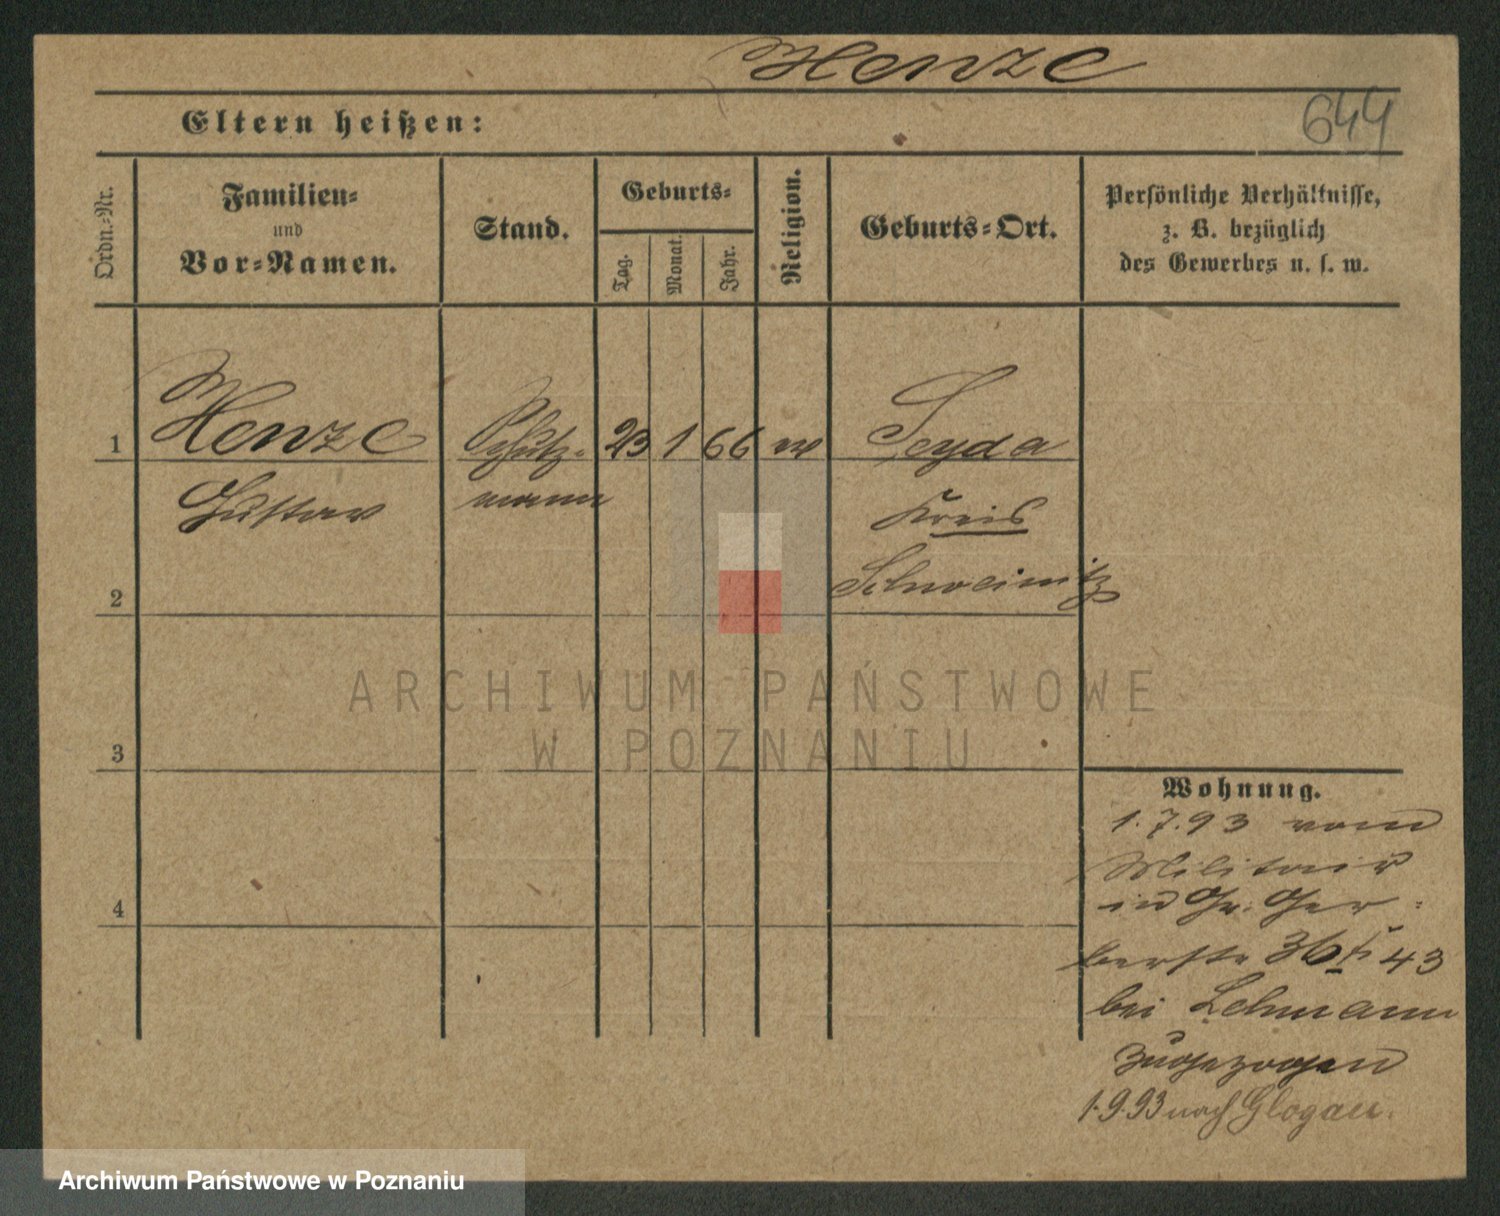 Henze
Eltern heißen:
644
Ordn.-Nr.
Familien-
und
Vor-Namen.
Stand.
Geburts-
Tag.
Monat.
Jahr.
Religion.
Geburts-Ort.
Persönliche Verhältnisse,
z. B. bezüglich
des Gewerbes u. s. w.
1
Henze
Schutz-
23
1
66
ev
Seyda
Gustav
mann
Kreis
2
Schweinitz
ARCHIWUM PAŃSTWOWE
W POZNANIU
3
Wohnung.
1.7.93 vom
Militair
in Gr. Ger-
4
berstr 36 43
bei Lehmann
zugezogen
1.9.93 nach Glogau.
Archiwum Państwowe w Poznaniu